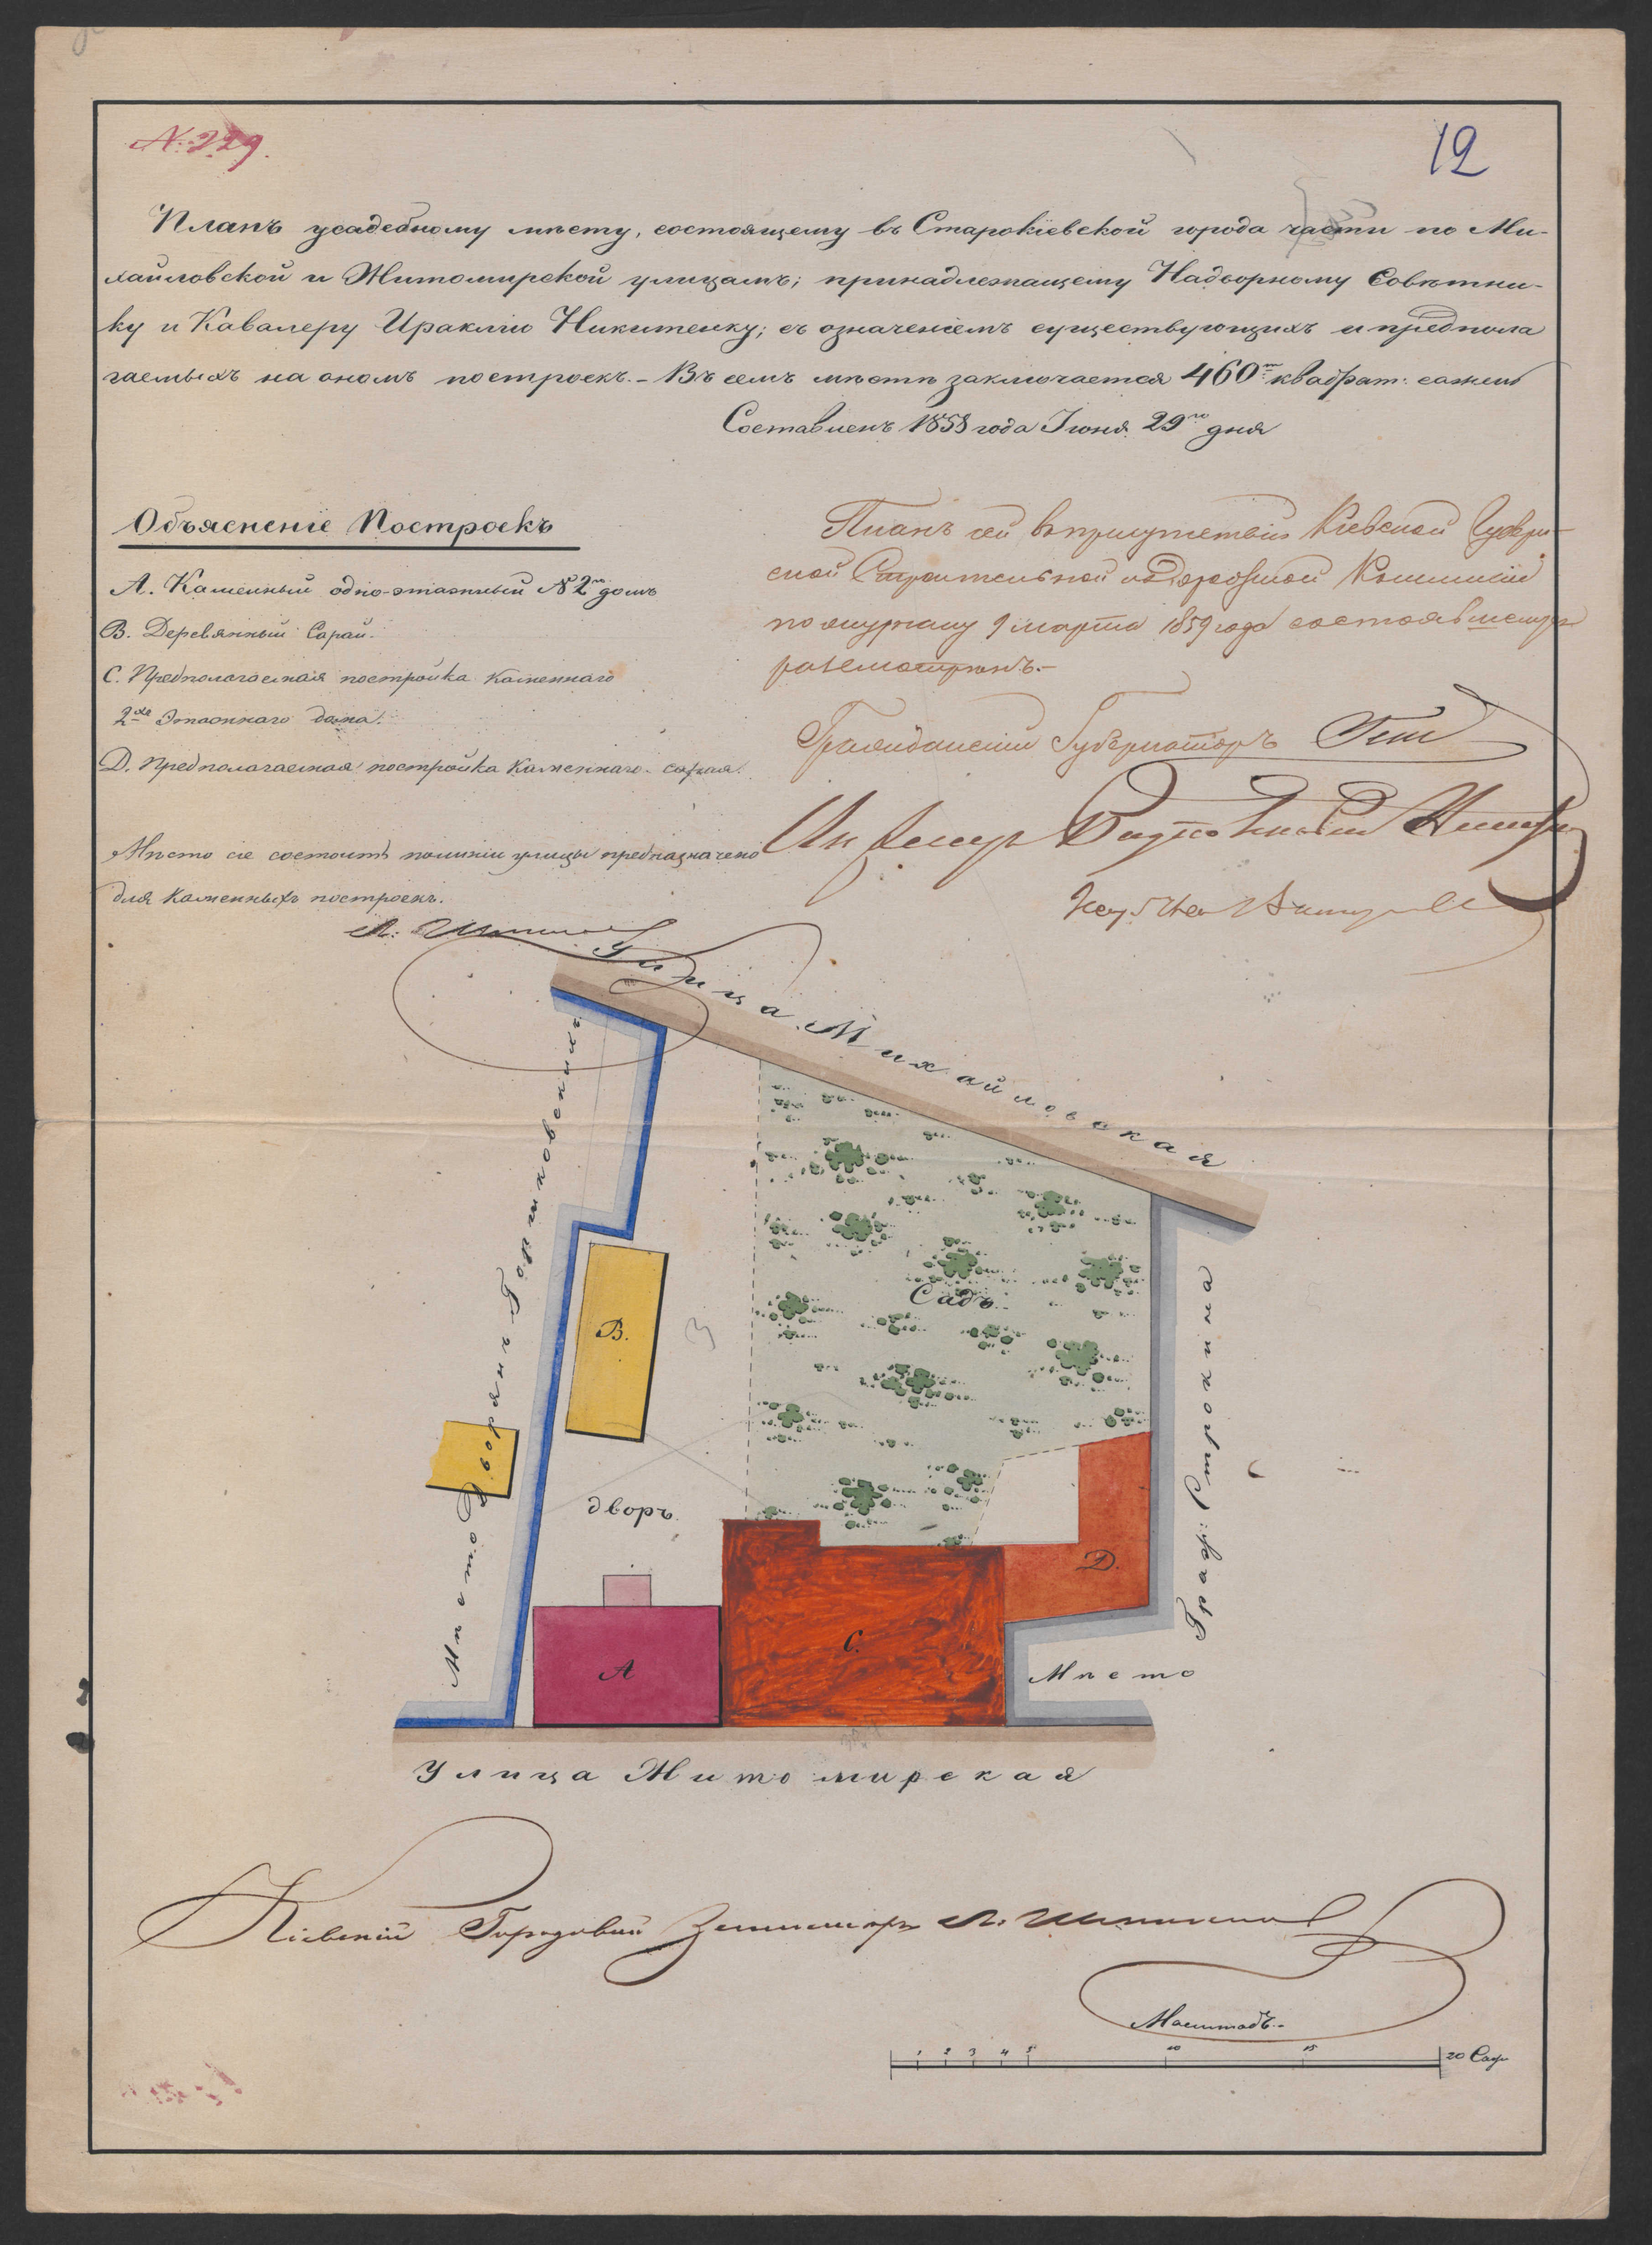 № 229.
12
Планъ усадебному мѣсту, состоящему въ Старокіевской города части по Ми-
хайловской и Житомирской улицамъ; принадлежащему Надворному Совѣтни-
ку и Кавалеру Ираклію Никитенку; съ означеніемъ существующихъ и предпола
гаемыхъ на ономъ построекъ. - Въ семъ мѣстѣ заключается 460 квадрат: сажень
Составленъ 1858 года Іюня 29го дня
Объясненіе Построекъ
А. Каменный одно-этажный № 2й домъ
В. Деревянный Сарай.
С. Предполагаемая постройка каменнаго
2хъ Этажнаго дома.
D. Предполагаемая постройка Каменнаго сарая.
Мѣсто сіе состоитъ по линіи улицы предназначено
для каменныхъ построекъ.
Планъ сей въ присутствіи Кіевской Губерн-
ской Строительной и Дорожной Коммисіи
по журналу 9 марта 1859 года состоявшемуся
разсмотрѣнъ.-
Гражданскій Губернаторъ Гессе
Инженеръ
Улица Михайловская
Мѣсто Дворянъ
В.
Садъ
дворъ.
D.
С.
А
Мѣсто
Граф: Строхина
Улица Житомирская
Кіевскій Городовый Землемеръ
Масштабъ.
1 2 3 4 5 10 15 20 Саж